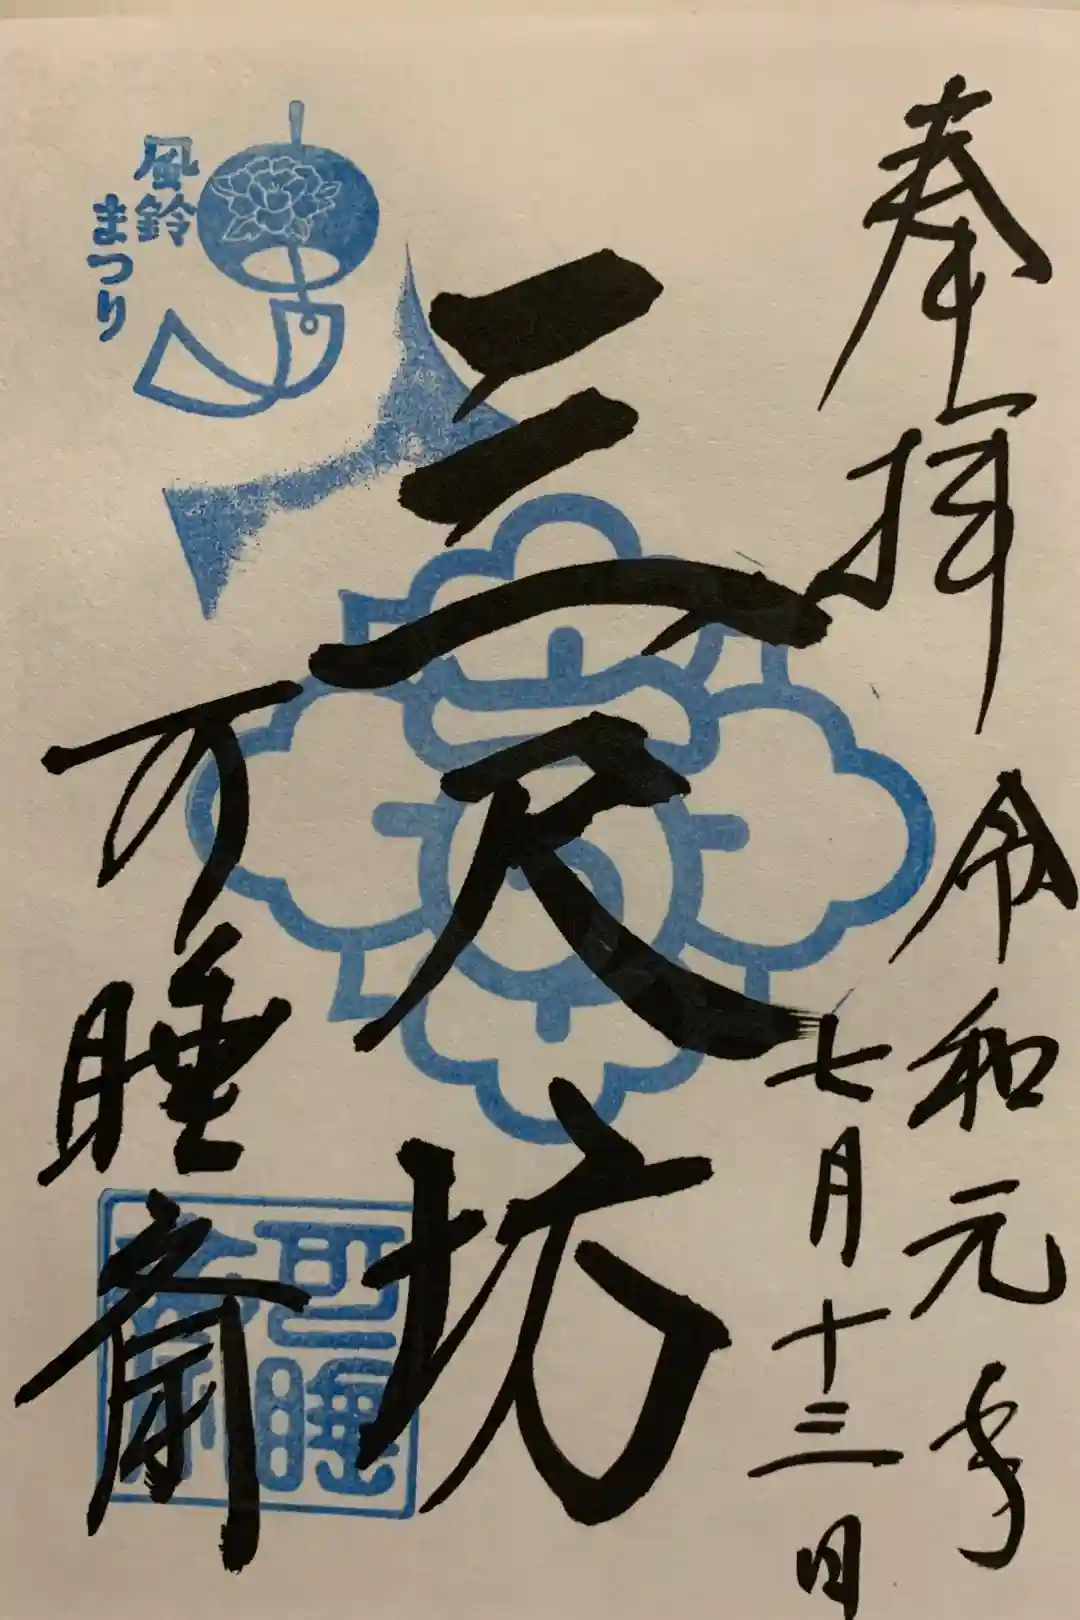 奉拝
令和元年
七月十三日
三尺坊
可睡斎
風鈴
まつり
可睡
斎